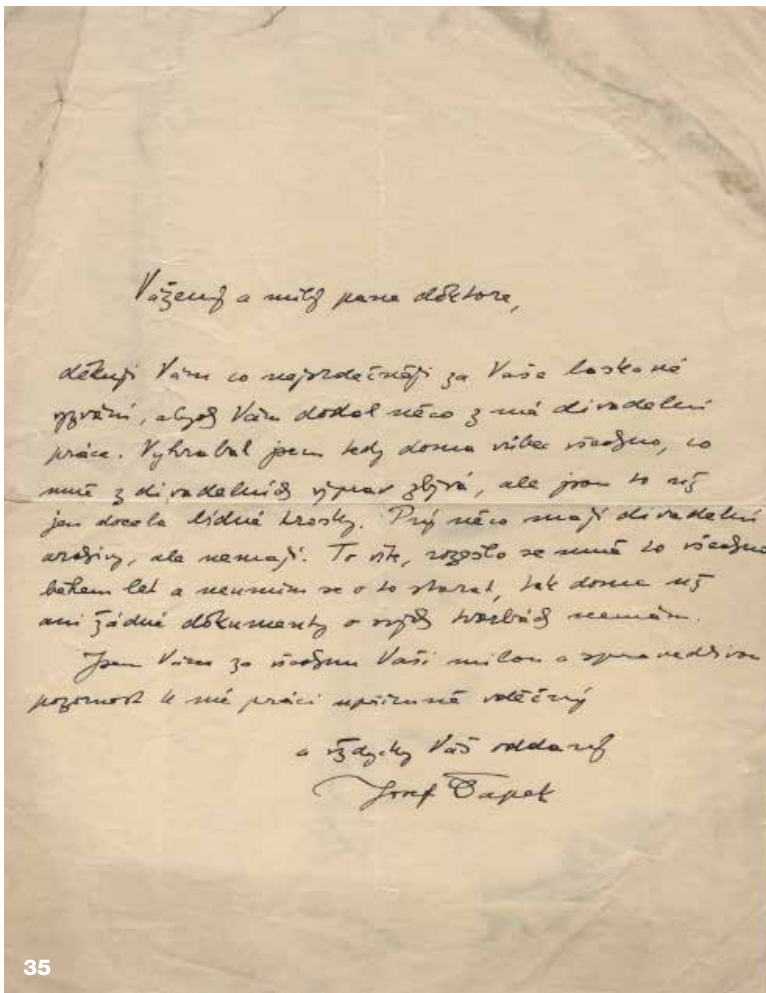 Vážený a milý pane doktore,
děkuji Vám co nejsrdečněji za Vaše laskavé
vyzvání, abych Vám dodal něco z mé divadelní
práce. Vyhrabal jsem tedy doma vůbec všechno, co
mně z divadelních výprav zbývá, ale jsou to už
jen docela bídné trosky. Prý něco mají divadelní
archivy, ale nemají. To víte, rozešlo se mně to všechno
během let a neumím se o to starat, tak doma už
ani žádné dokumenty o svých tvorbách nemám.
Jsem Vám za všechnu Vaši milou a spravedlivou
pozornost k mé práci upřímně vděčný
a vždycky Váš oddaný
Josef Čapek
35